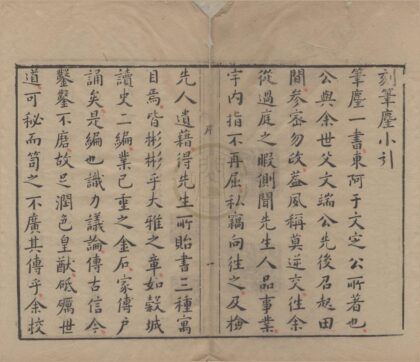 刻筆塵小引
筆塵一書東阿于文定公所著也
公與余世父文端公先後召起田
間參密勿改益風稱莫逆交往余
從過庭之暇側聞先生人品事業
宇內指不再屈私竊向往之及檢
先人遺籍得先生所貽書三種寓
目焉皆彬彬乎大雅之章如穀城
讀史二編業已重之金石家傳戶
誦矣是編也識力議論傳古信今
鑿鑿不磨故足潤色皇猷砥礪世
道可秘而笥之不廣其傳乎余校